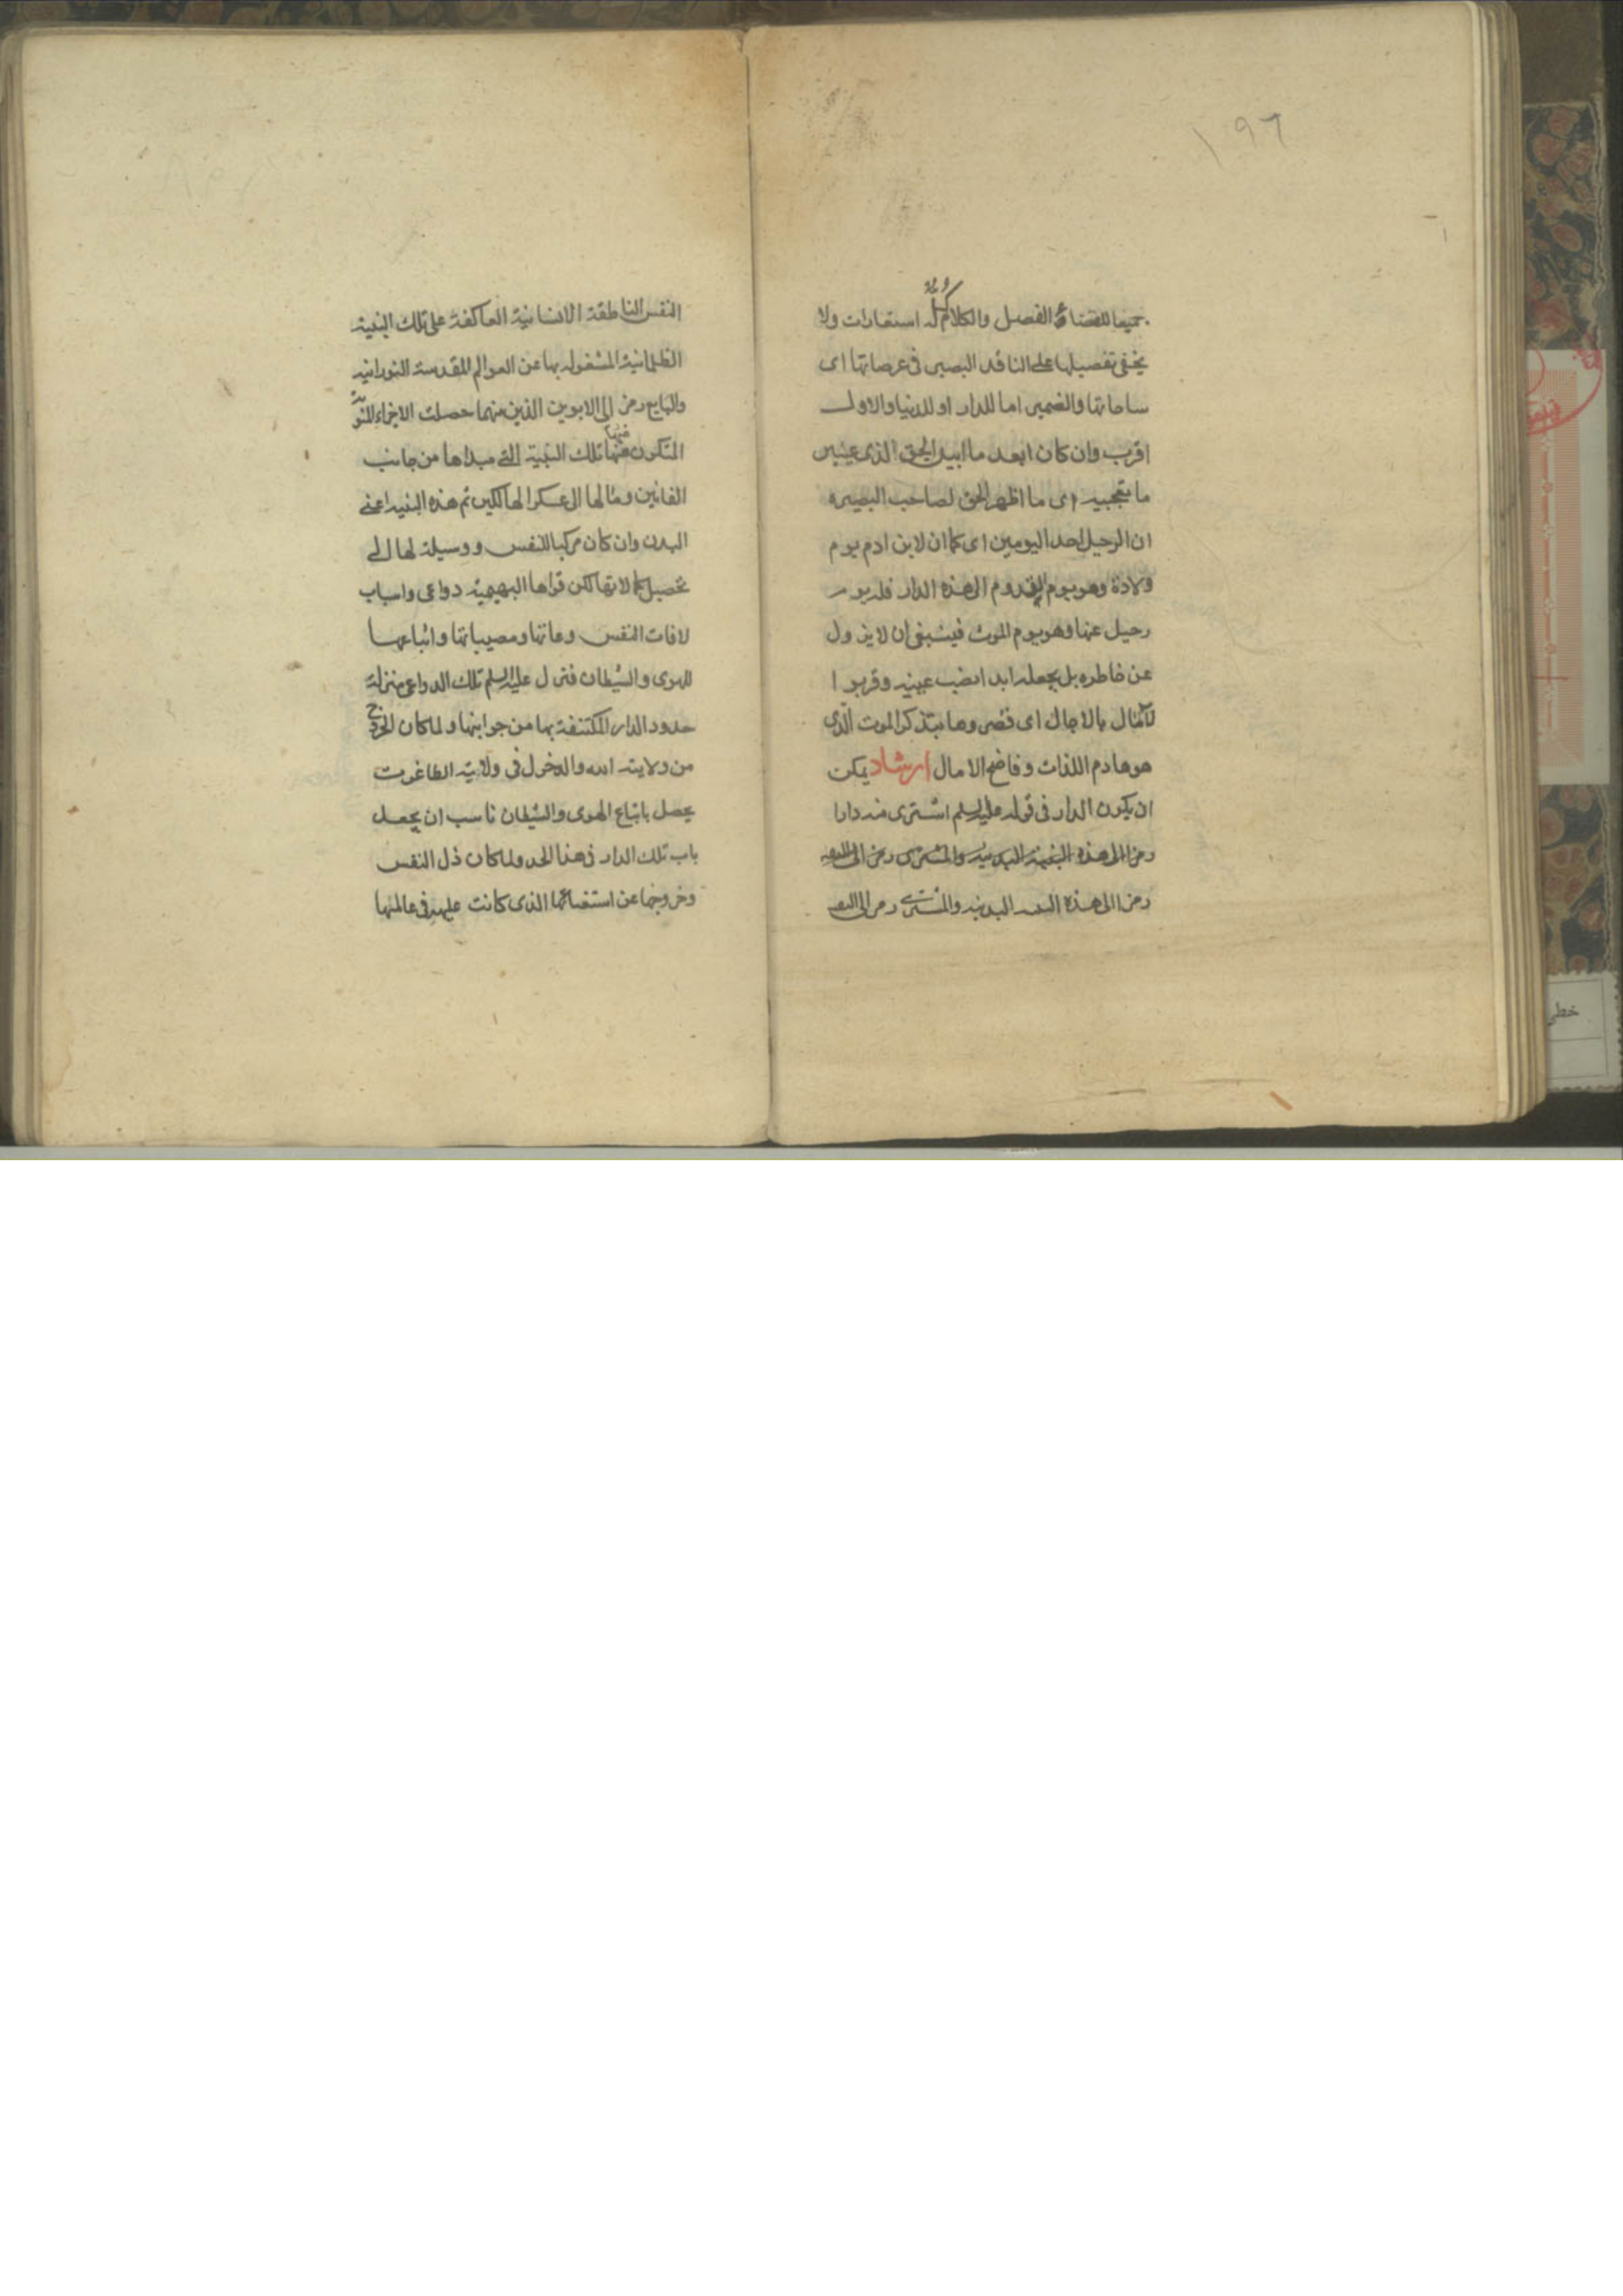 ١٩٦
جميعا للقضاء الفصل والكلام كله استعارات ولا
يخفى تفصيلها على الناقد البصير فى عرصاتها اى
ساحاتها والضمير اما للدار او للدنيا والاول
اقرب وان كان ابعد ما ابين الحق الذى عينين
ما تعجبيه اى ما اظهر الحق لصاحب البصيره
ان الرحيل احد اليومين اى كما ان لابن ادم يوم
ولادة وهو يوم القدوم الى هذه الدار فله يوم
رحيل عنها وهو يوم الموت فينبغى ان لا يزول
عن خاطره بل يجعله ابدا نصب عينيه وقربوا
الآمال بالاجال اى قصروها بتذكر الموت الّذى
هو هادم اللذات وفاضح الامال ارشاد يمكن
ان يكون الدار فى قوله عليه السلم اشترى منه دارا
رمزا الى هذه البنية البدنيه والمشترى رمز الى
رمزا الى هذه البدنيه والمشترى رمز الى
النفس الناطقة الانسانية العاكفة على تلك البنية
الظلمانية المشغوله بها عن العوالم المقدسة النورانيه
والبايع رمز الى الابوين الذين منهما حصلت الاجزاء المنويّة
المتكون منها تلك البنية التى مبداها من جانب
الفانين ومالها الى عسكر الهالكين ثم هذه البنيه اعنى
البدن وان كان مركبا للنفس ووسيلة لها الى
تحصيل كمالاتها لكن قواها البهيمية دواعى واسباب
لافات النفس وعاتها ومصيباتها واتباعها
للهوى والشيطان فنزل عليه السلم تلك الدواعى منزلة
حدود الدار المكتنفة بها من جوانبها ولما كان الخروج
من ولاية الله والدخول فى ولاية الطاغوت
يحصل باتباع الهوى والشيطان ناسب ان يجعل
باب تلك الدار فى هذا الحد ولما كان ذل النفس
وخروجها عن استغنائها الذى كانت عليه فى عالمها
خطى